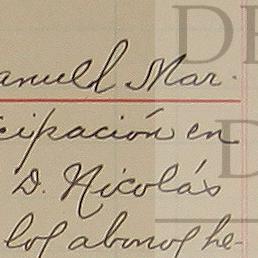 anuell Mar.
cipación en
D. Nicolás
los abonos he-